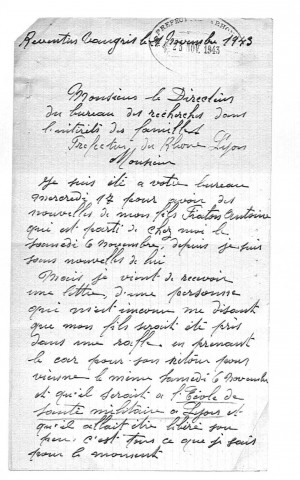 Reventin Vaugris le 21 Novembre 1943
PREFECTURE RHONE
23 NOV. 1943
Monsieur le Directeur
du bureau des recherches dans
l'intérêts des familles
Prefecture du Rhône Lyon
Monsieur
Je suis été a votre bureau
mercredi 17 pour avoir des
nouvelles de mon fils Antoine
qui est parti de chez moi le
samedi 6 novembre, depuis je suis
sans nouvelles de lui
Mais je vient de recevoir
une lettre d'une personne
qui m'est inconnue me disant
que mon fils serait été pris
dans une rafle en prenant
le car pour son retour pour
vienne le meme samedi 6 Novembre
et qu'il serait a l'Ecole de
Santé militaire a Lyon et
qu'il allait être libéré sou
peu. c'est tous ce que je sais
pour le moment